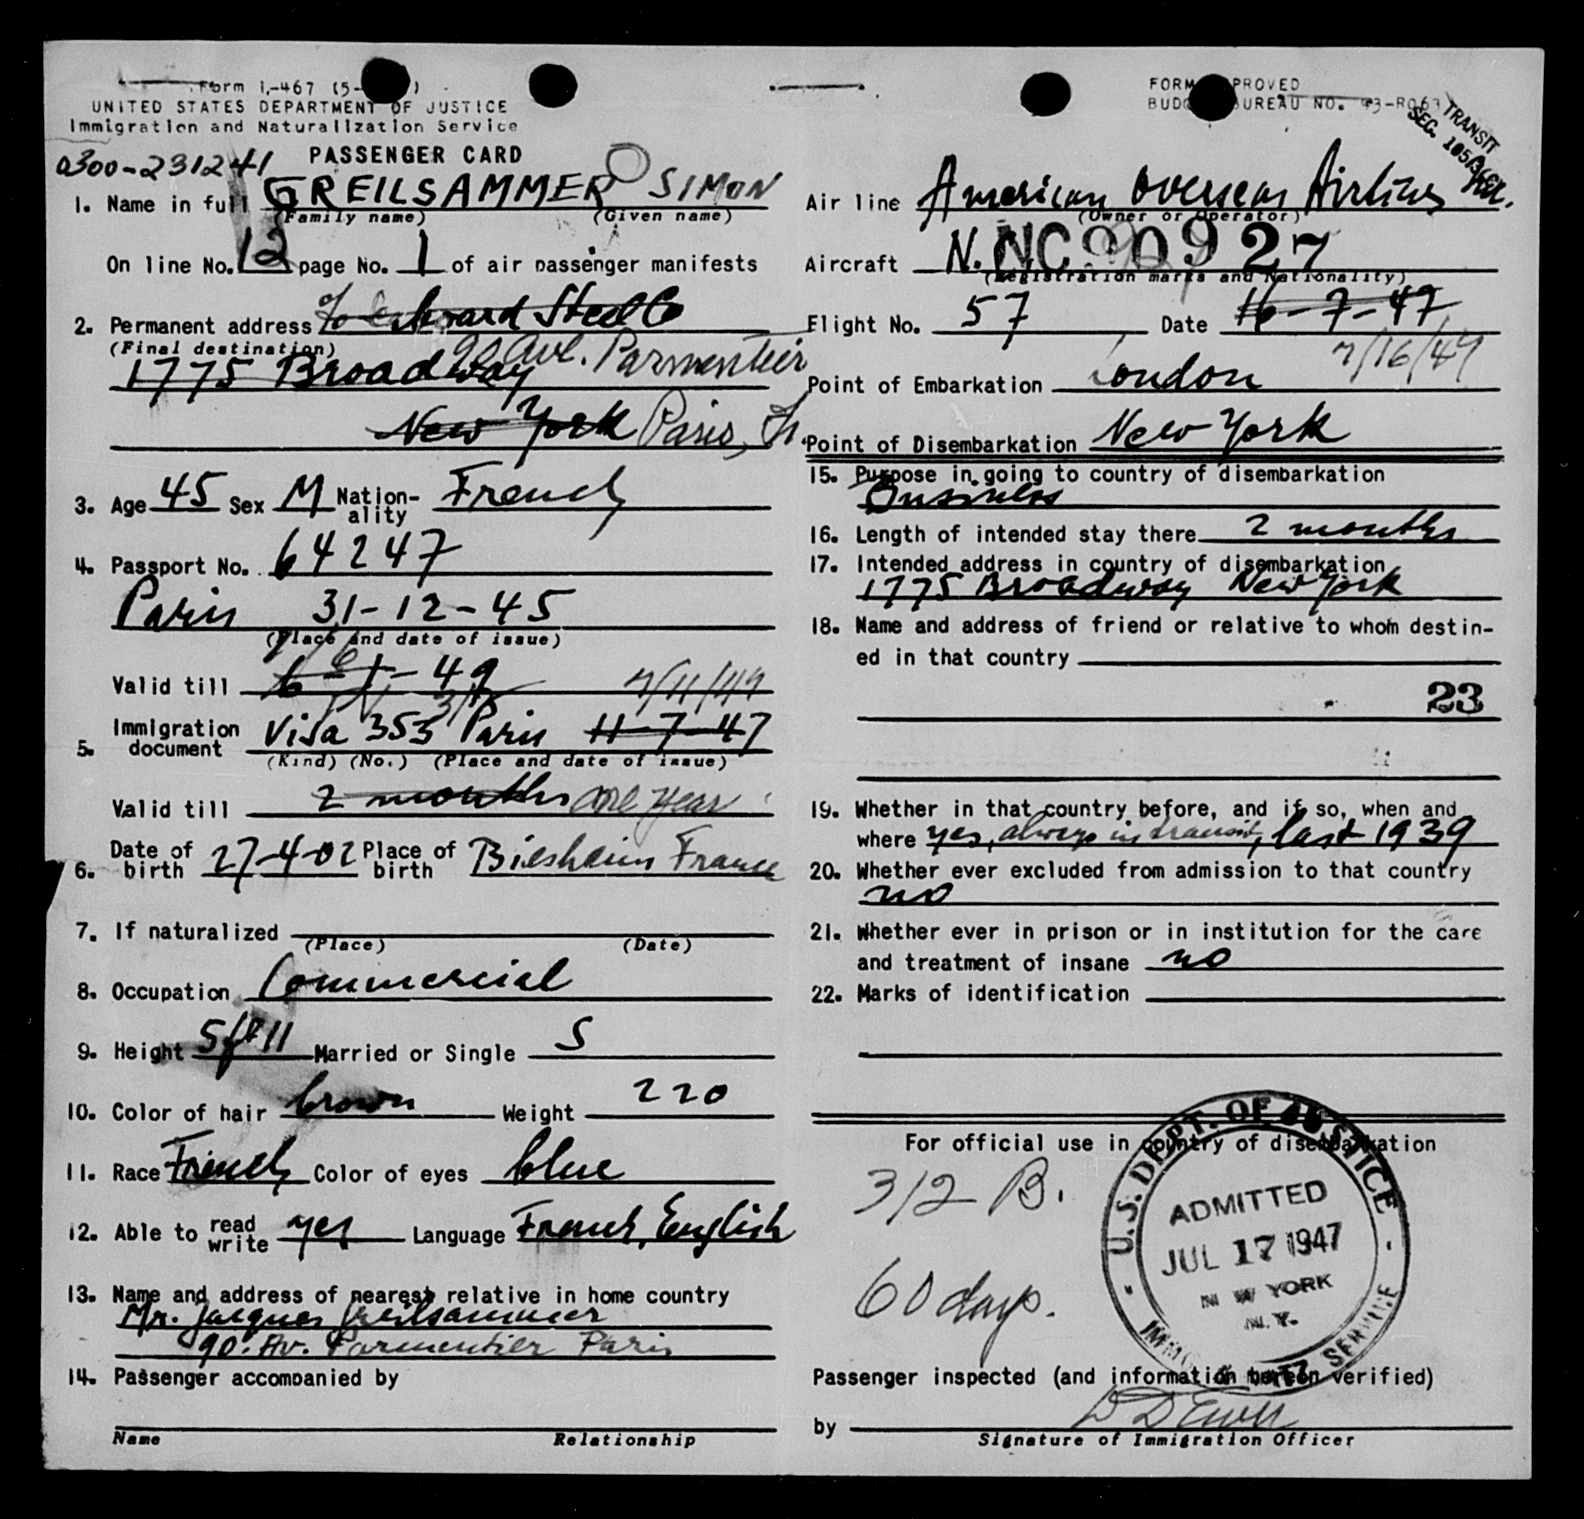 Form I-467 (5-
UNITED STATES DEPARTMENT OF JUSTICE
Immigration and Naturalization Service
0300-231241 PASSENGER CARD
1. Name in full GREILSAMMER SIMON
(Family name) (Given name)
On line No. 12 page No. 1 of air passenger manifests
2. Permanent address c/o Steel Co
(Final destination)
1775 Broadway 90 Ave. Parmentier
New York Paris, Fr.
3. Age 45 Sex M Nation-ality French
4. Passport No. 64247
Paris 31-12-45
(Place and date of issue)
Valid till 49 7/11/49
5. Immigration document Visa 353 Paris 11-7-47
(Kind) (No.) (Place and date of issue)
Valid till 2 months one year
6. Date of birth 27-4-02 Place of birth Biesheim France
7. If naturalized
(Place) (Date)
8. Occupation Commercial
9. Height 5 ft 11 Married or Single S
10. Color of hair brown Weight 220
11. Race French Color of eyes blue
12. Able to read write yes Language French, English
13. Name and address of nearest relative in home country
Mr. Jacques Greilsammer
90. Av. Parmentier Paris
14. Passenger accompanied by
Name Relationship
FORM APPROVED
BUDGET BUREAU NO. 43-R063
TRANSIT
SEC.
Air line American Overseas Airlines
(Owner or Operator)
Aircraft N. NC90927
(Registration marks and Nationality)
Flight No. 57 Date 16-7-47
7/16/47
Point of Embarkation London
Point of Disembarkation New York
15. Purpose in going to country of disembarkation
Business
16. Length of intended stay there 2 months
17. Intended address in country of disembarkation
1775 Broadway New York
18. Name and address of friend or relative to whom destin-
ed in that country
23
19. Whether in that country before, and if so, when and
where yes, always in transit, last 1939
20. Whether ever excluded from admission to that country
no
21. Whether ever in prison or in institution for the care
and treatment of insane no
22. Marks of identification
For official use in country of disembarkation
312 B.
60 days.
U.S. DEPT. OF JUSTICE
ADMITTED
JUL 17 1947
NEW YORK
N.Y.
SERVICE
Passenger inspected (and information hereon verified)
by
Signature of Immigration Officer